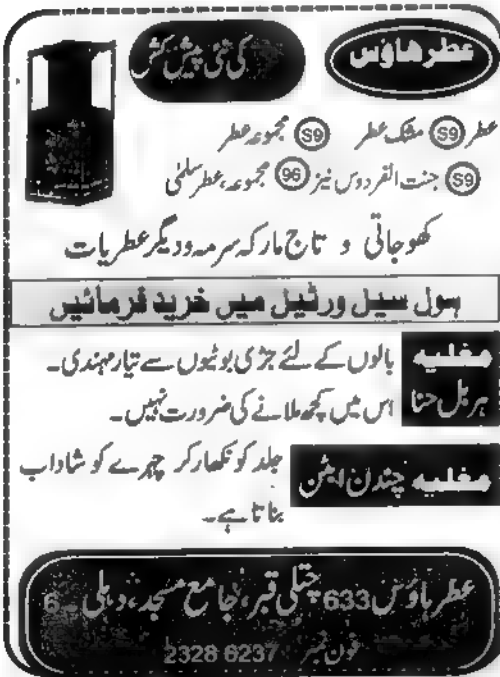 عطر هاؤس
کی نئی پیش کش
عطر S9 مشک عطر S9 مجموعہ عطر
S9 جنت الفردوس نیز 96 مجموعہ، عطر سلمٰی
کھوجاتی و تاج مارکہ سرمہ و دیگر عطریات
ہول سیل و رٹیل میں خرید فرمائیں
مغلیہ ہربل حنا
بالوں کے لئے جڑی بوٹیوں سے تیار مہندی۔
اس میں کچھ ملانے کی ضرورت نہیں۔
مغلیہ چندن ابٹن
جلد کو نکھار کر چہرے کو شاداب
بناتا ہے۔
عطر ہاؤس 633 چتلی قبر، جامع مسجد، دہلی۔6
فون نمبر: 2328 6237